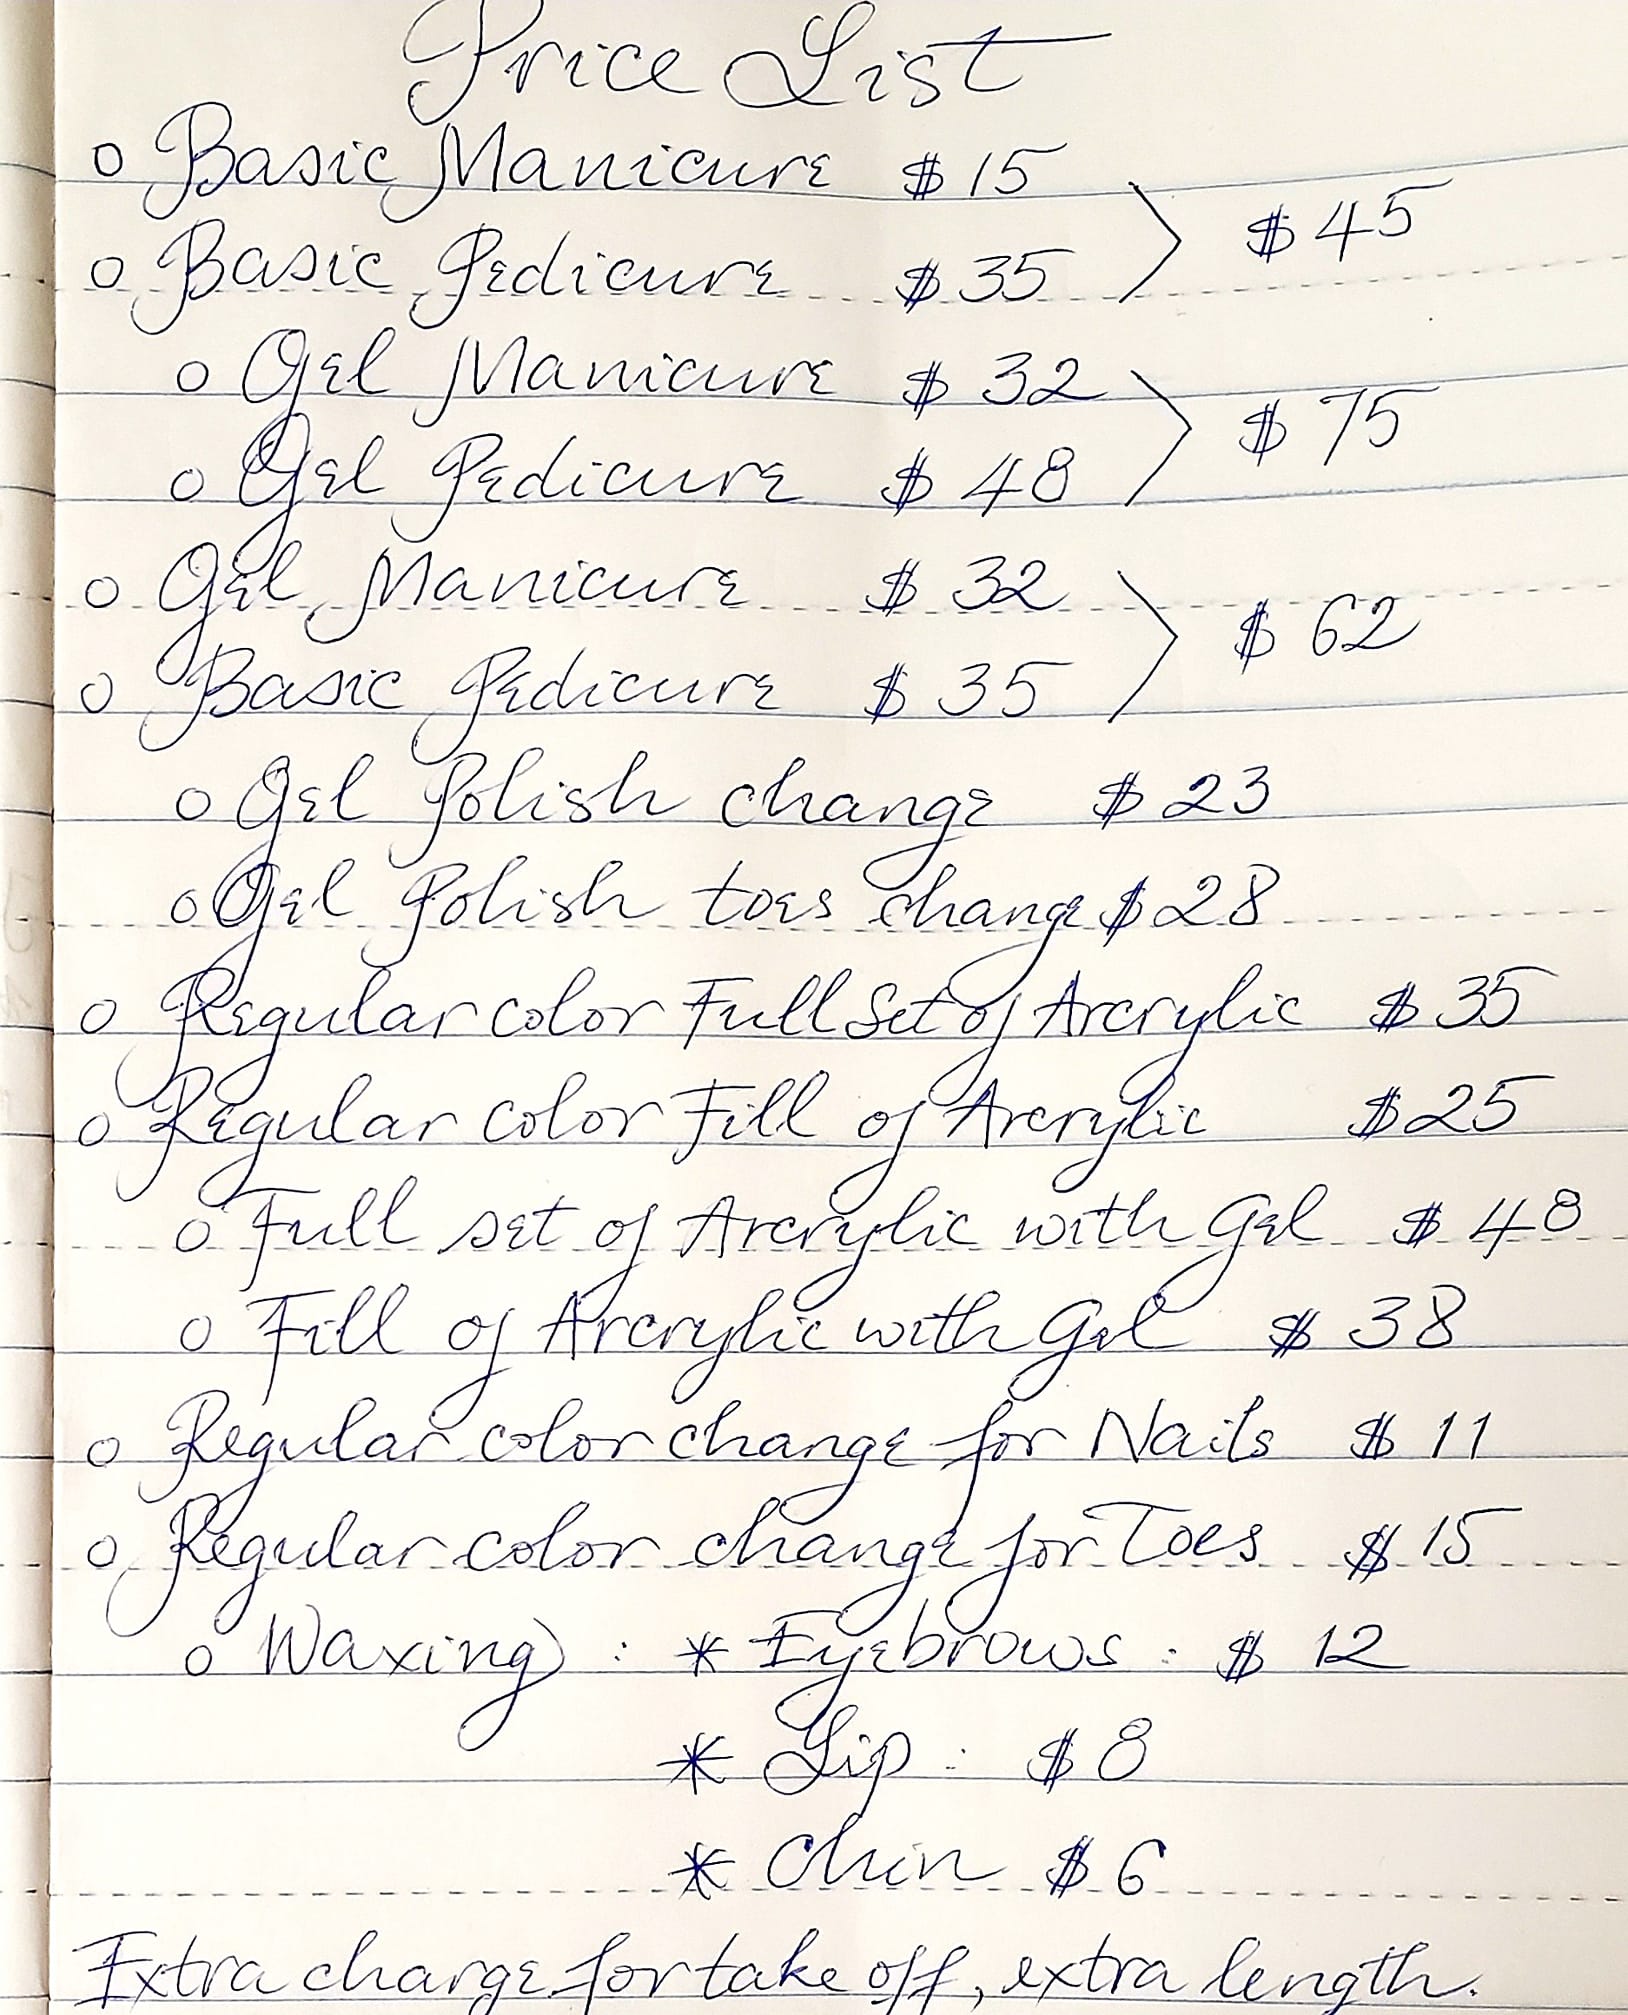 Price List
o Basic Manicure $15
$45
o Basic Pedicure $35
o Gel Manicure $32
$75
o Gel Pedicure $48
o Gel Manicure $32
$62
o Basic Pedicure $35
o Gel Polish change $23
o Gel Polish toes change $28
o Regular color Full Set of Arcrylic $35
o Regular color Fill of Arcrylic $25
o Full set of Arcrylic with Gel $48
o Fill of Arcrylic with Gel $38
o Regular color change for Nails $11
o Regular color change for Toes $15
o Waxing : * Eyebrows : $12
* Lip : $8
* Chin $6
Extra charge for take off, extra length.